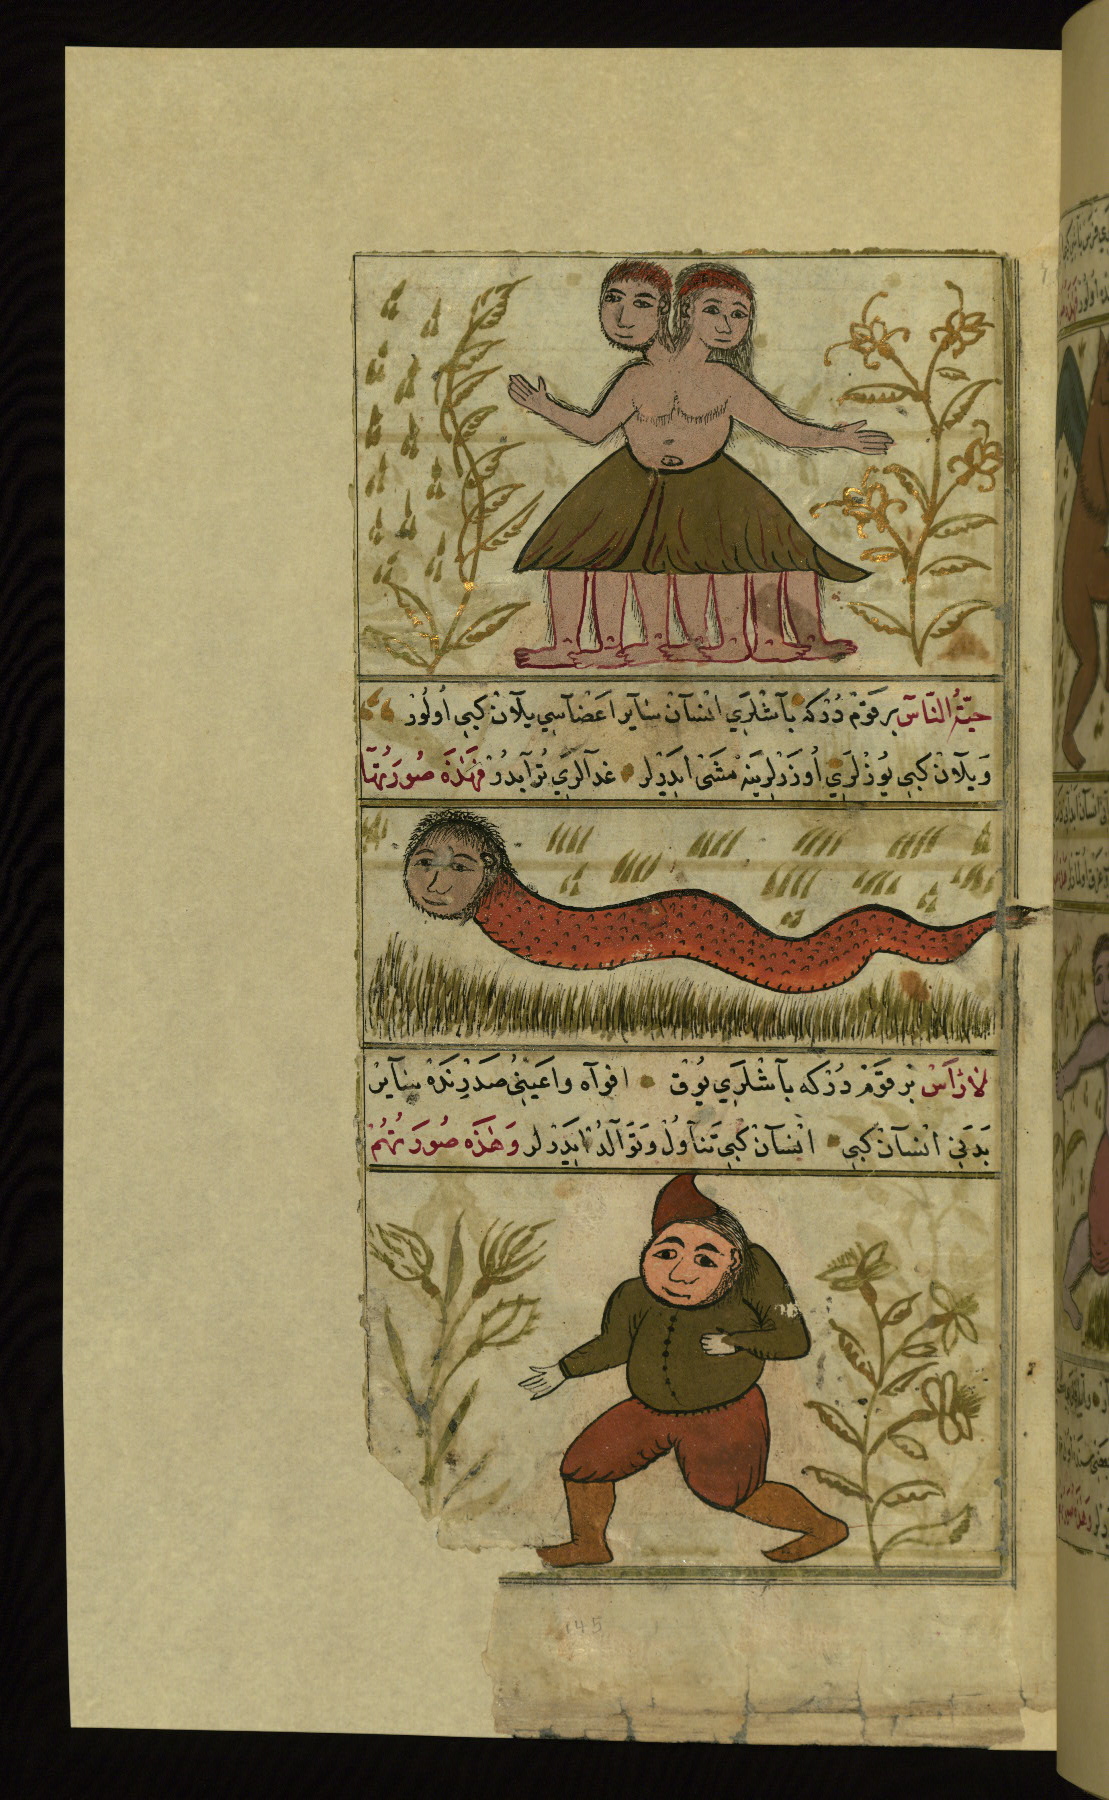 حيّةُ النَّاسْ بر قَوْمْ دُرْكه بَآشْلَرِي اِنْسَآنْ سَآيِر اَعْضَآسِي يِلَآنْ كَبِي اُولُورْ
وَيِلَآنْ كَبِي يُوزْلَرِي اُوزَرْلَرِينَهْ مَشْىْ اِيدَرْلَر غِدَآلَرِي تُرَآبدُرْ فَهٰذَهْ صُورَتُهَآ
لَارَاَسْ بر قَوْمْ دُرْكه بَآشْلَرِي يُوقْ افوآه واَعْيُنِى صَدْرِنْدَهْ سَآيِرْ
بَدَنِي اِنْسَآنْ كَبِي اِنْسَآنْ كَبِي تَنَآوُلْ وَتَوَآلُدْ اِيدَرْلَر وَهٰذَه صُورَتُهُمْ
145